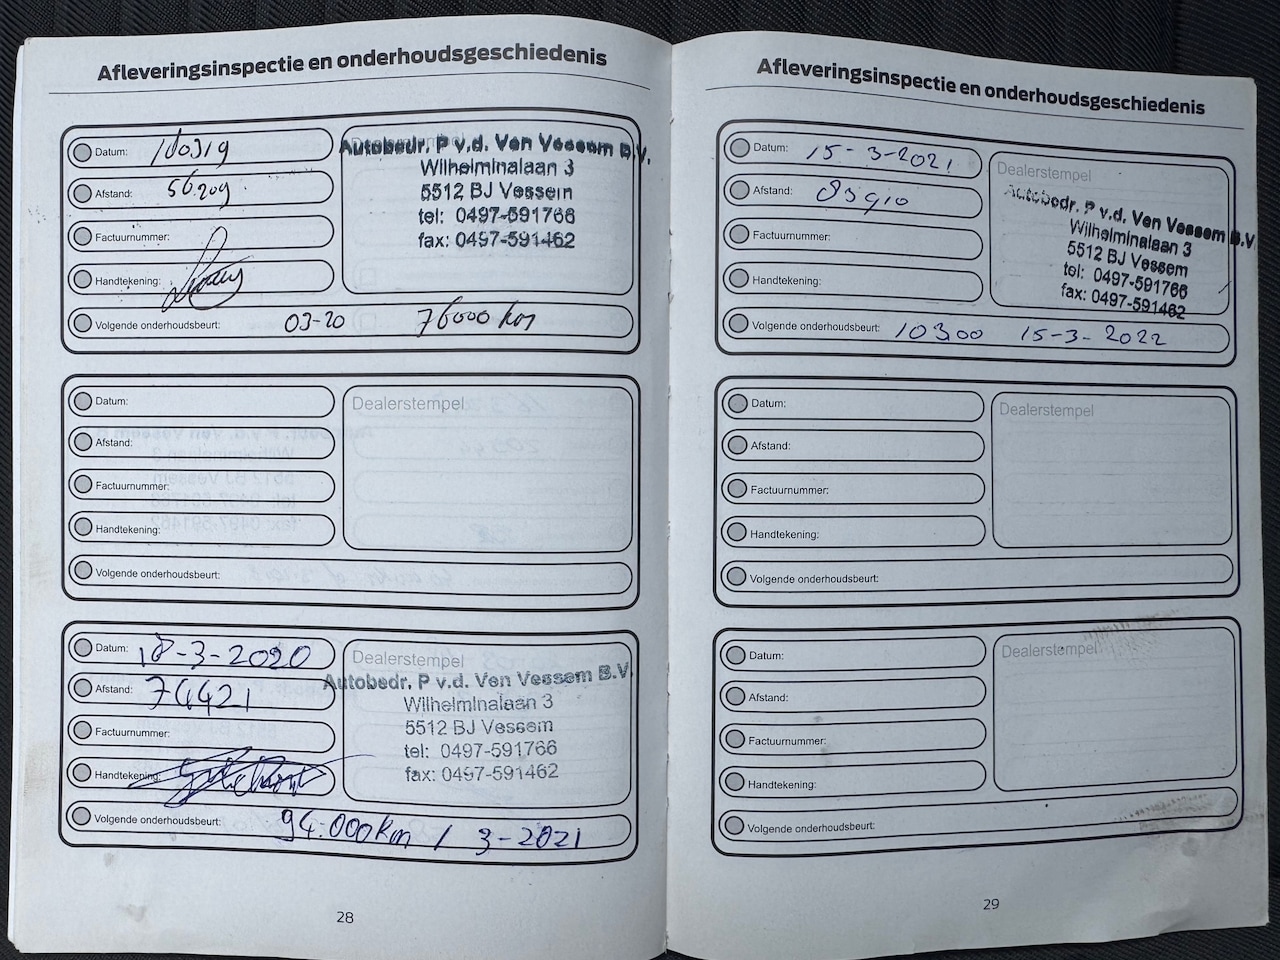 Afleveringsinspectie en onderhoudsgeschiedenis
Datum: 180319
Afstand: 56.209
Factuurnummer:
Handtekening:
Volgende onderhoudsbeurt: 03-20 76000 km
Autobedr. P v.d. Ven Vessem B.V.
Wilhelminalaan 3
5512 BJ Vessem
tel: 0497-591766
fax: 0497-591462
Datum:
Afstand:
Factuurnummer:
Handtekening:
Volgende onderhoudsbeurt:
Dealerstempel
Datum: 18-3-2020
Afstand: 74421
Factuurnummer:
Handtekening:
Volgende onderhoudsbeurt: 94.000km / 3-2021
Dealerstempel
Autobedr. P v.d. Ven Vessem B.V.
Wilhelminalaan 3
5512 BJ Vessem
tel: 0497-591766
fax: 0497-591462
28
Afleveringsinspectie en onderhoudsgeschiedenis
Datum: 15-3-2021
Afstand: 83910
Factuurnummer:
Handtekening:
Volgende onderhoudsbeurt: 10300 15-3-2022
Dealerstempel
Autobedr. P v.d. Ven Vessem B.V
Wilhelminalaan 3
5512 BJ Vessem
tel: 0497-591766
fax: 0497-591462
Datum:
Afstand:
Factuurnummer:
Handtekening:
Volgende onderhoudsbeurt:
Dealerstempel
Datum:
Afstand:
Factuurnummer:
Handtekening:
Volgende onderhoudsbeurt:
Dealerstempel
29